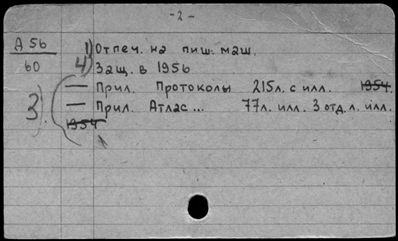 - 2 -
А 56
60
1) Отпеч. на пиш. маш.
4) Защ. в 1956
3) — Прил. Протоколы 215л. с илл. 1954.
— Прил. Атлас ... 77л. илл. 3 отд. л. илл.
1954